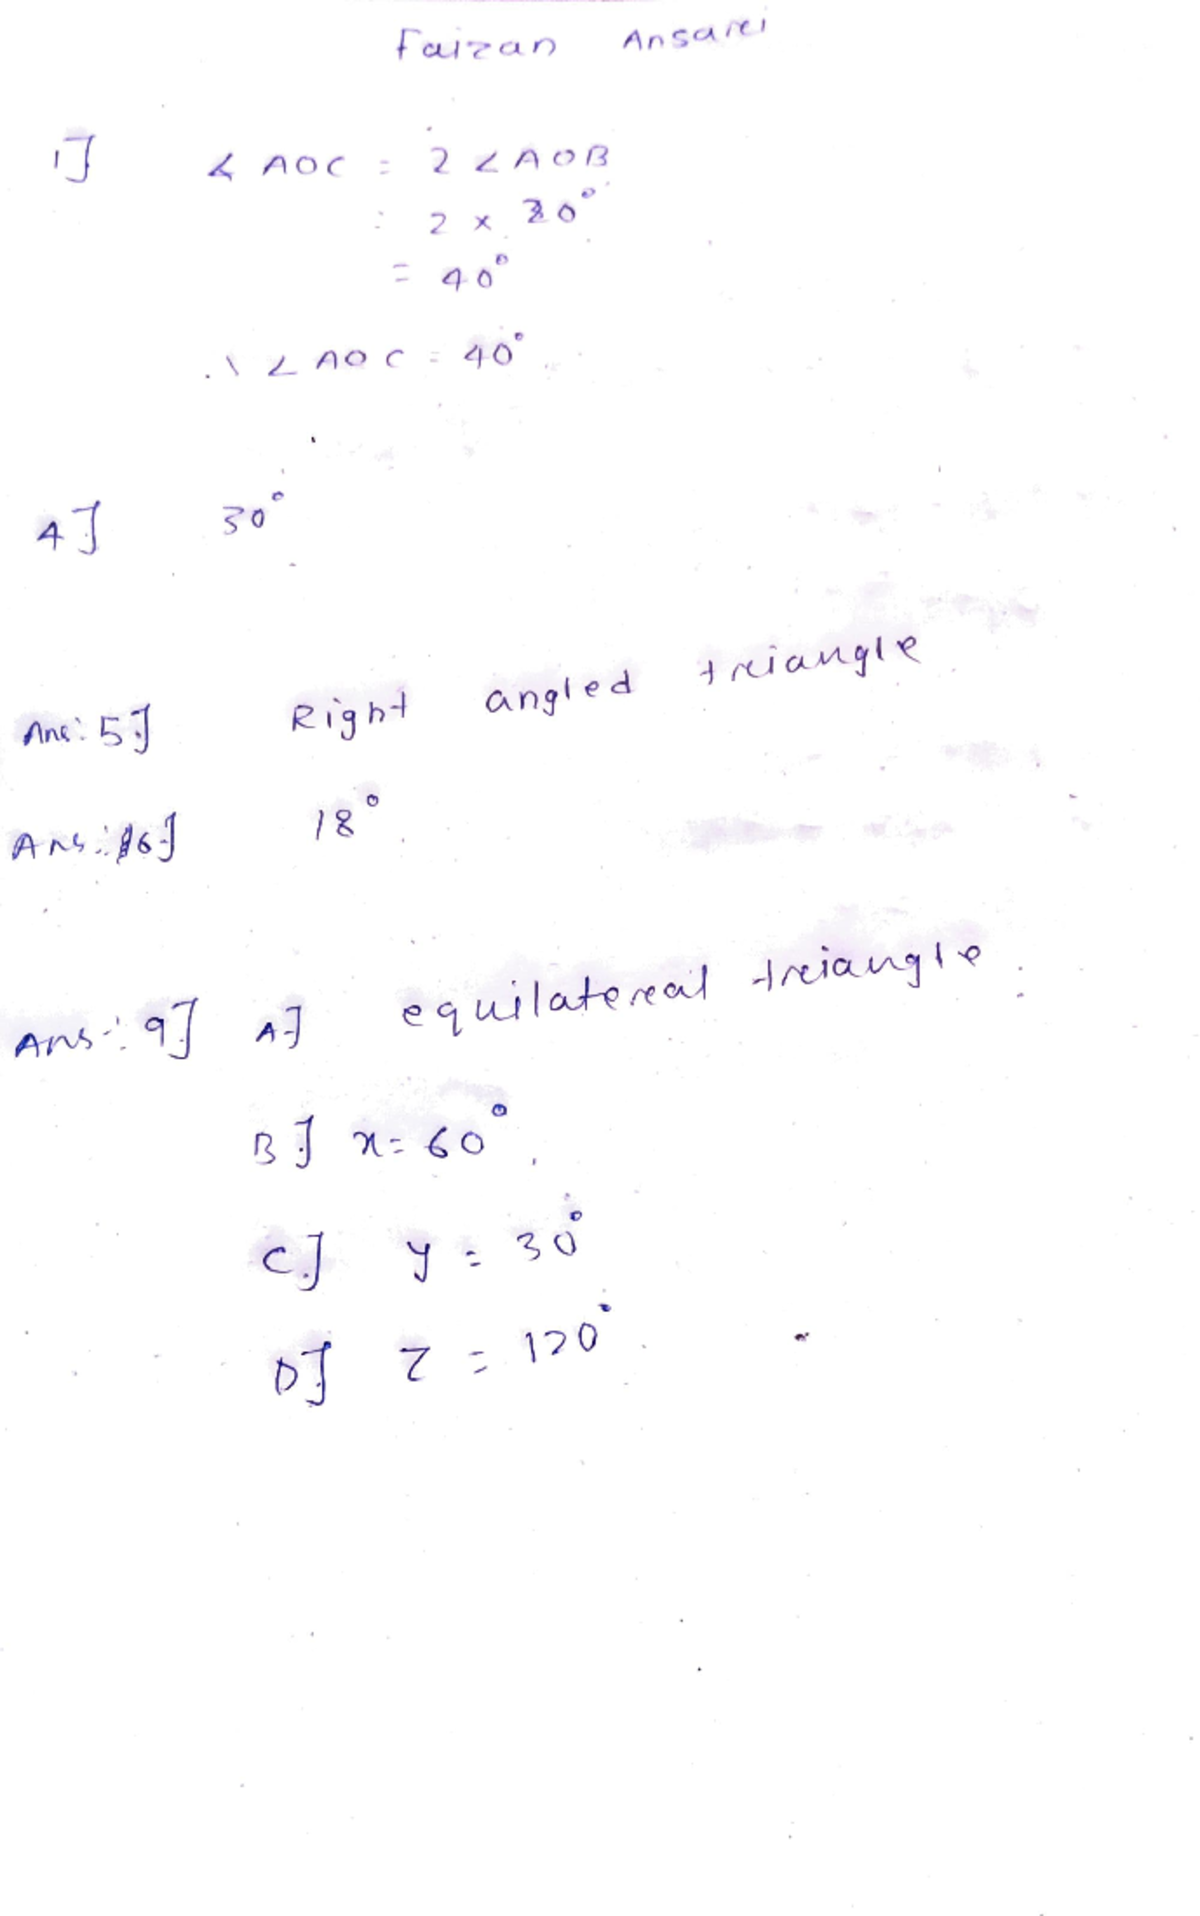 Faizan Ansari
1] ∠ AOC = 2 ∠AOB
= 2 × 20°
= 40°
∴ ∠ AOC = 40°
4] 30°
Ans: 5] Right angled triangle
Ans: 6] 18°
Ans: 9] A] equilateral triangle.
B] x = 60°
C] y = 30°
D] z = 120°